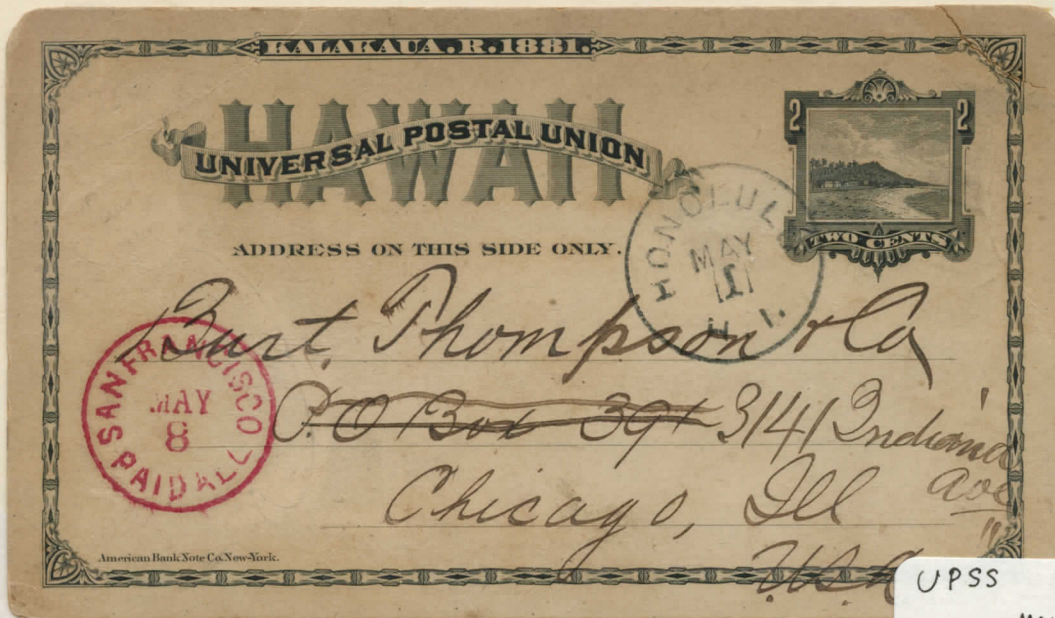 KALAKAUA.R.1881.
HAWAII
UNIVERSAL POSTAL UNION
2 2
TWO CENTS
ADDRESS ON THIS SIDE ONLY.
HONOLULU
MAY
1
H. I.
Burt. Thompson & Co
SAN FRANCISCO
MAY
8
PAID ALL
P.O Box 391 3141 Indiana
Ave
Chicago, Ill
U.S.A
American Bank Note Co. New-York.
UPSS